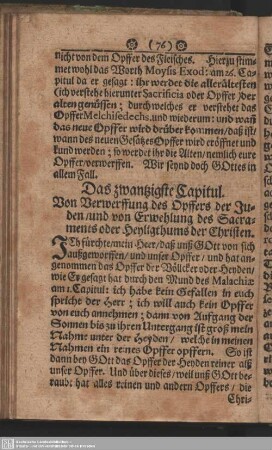 (76)
nicht von dem Opffer des Fleisches. Hierzu stim-
met wohl das Worth Moysis Exod: am 26. Ca-
pitul da er gesagt: ihr werdet die allerältesten
(ich verstehe hierunter Sacrificia oder Opffer) der
alten genüssen; durch welches er verstehet das
Opffer Melchisedechs, und wiederum: und wañ
das neue Opffer wird drüber kommen/ daß ist
wann des neuen Gesätzes Opffer wird eröffnet und
kund werden; so werdet ihr die Alten/ nemlich eure
Opffer/ verwerffen. Wir seynd doch GOttes in
allem Fall.
Das zwantzigste Capitul.
Von Verwerffung des Opffers der Jü-
den/ und von Erwehlung des Sacra-
ments oder Heyligthums der Christen.
ICh fürchte/ mein Heer/ daß unß GOtt von sich
außgeworffen/ und unser Opffer/ und hat an-
genommen das Opffer der Völcker oder Heyden/
wie Er gesagt hat durch den Mund des Malachiæ
am 1. Capitul: ich habe kein Gefallen in euch
spricht der Herr; ich will auch kein Opffer
von euch annehmen; dann von Auffgang der
Sonnen bis zu ihren Untergang ist groß mein
Nahme unter der Heyden/ welche in meinen
Nahmen ein reines Opffer opffern. So ist
dann bey GOtt das Opffer der Heyden reiner alß
unser Opffer. Und über dieses/ weil unß GOtt be-
raubt hat alles reinen und andern Opffers/ die
Chris-